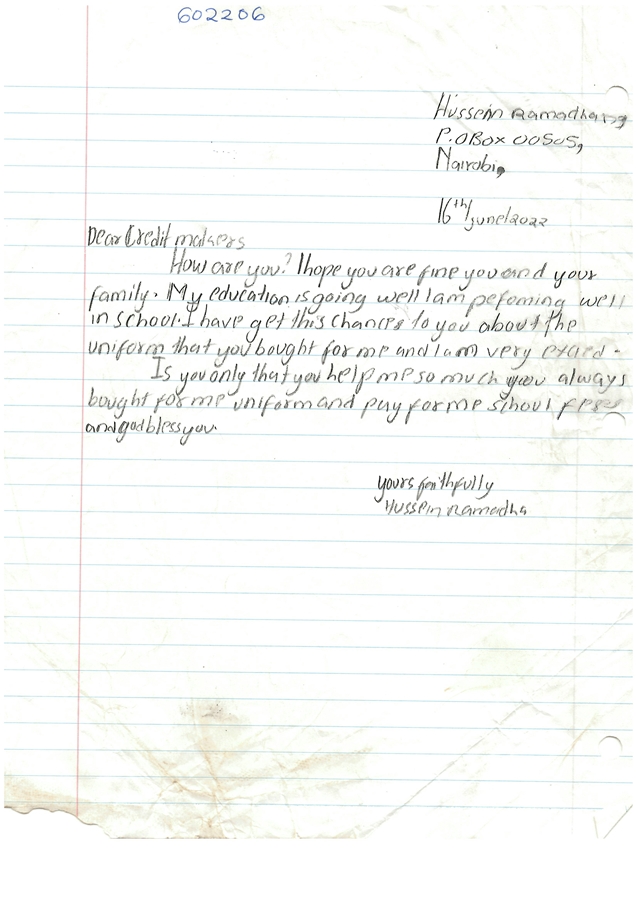 602206
Hussein Ramadhan,
P.O Box 00505,
Nairobi,
16th/June/2022
Dear Credit makers
How are you? I hope you are fine you and your
family. My education is going well I am pefoming well
in school. I have get this chances to you about the
uniform that you bought for me and I am very exced.
Is you only that you help me so much you always
bought for me uniform and pay for me school fees
and god bless you.
yours faithfully
Hussein Ramadha